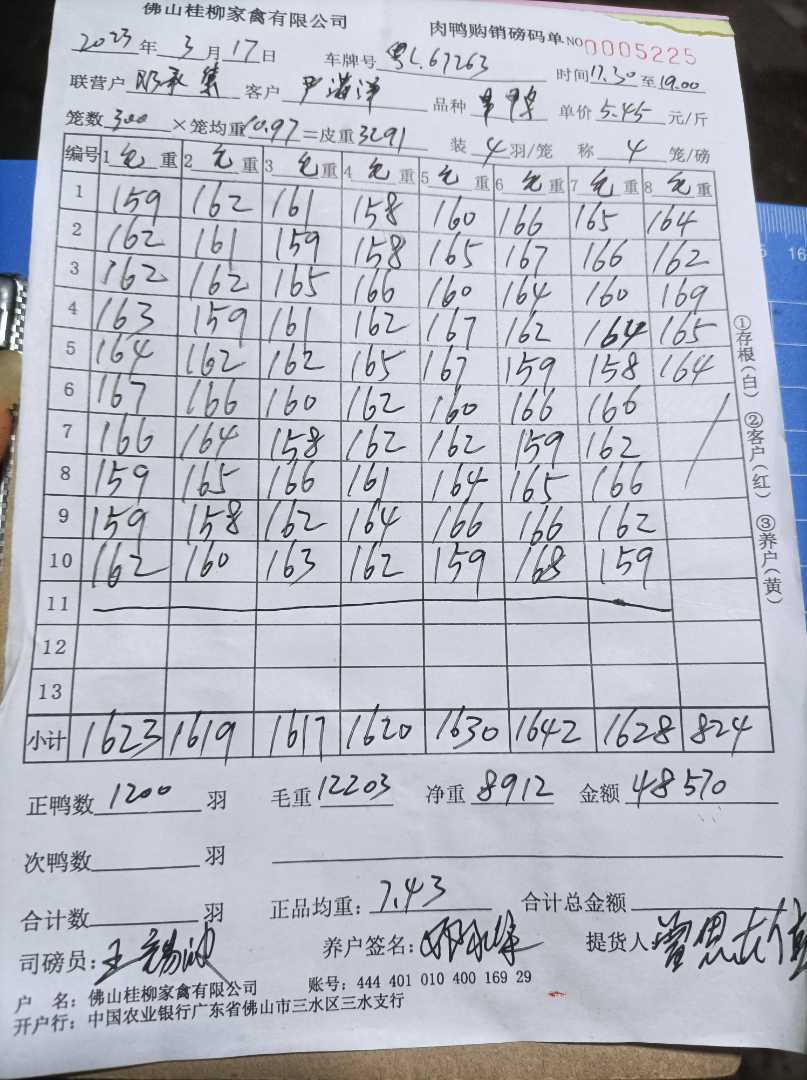 佛山桂柳家禽有限公司 肉鸭购销磅码单 NO 0005225
2023年3月17日 车牌号 粤L.67263 时间17.30至19.00
联营户 客户 尹满洋 品种 单价 5.45 元/斤
笼数 300 ×笼均重 10.97 =皮重 3291 装 4 羽/笼 称 4 笼/磅
编号 1 毛重 2 毛重 3 毛重 4 毛重 5 毛重 6 毛重 7 毛重 8 毛重
1 159 162 161 158 160 166 165 164
2 162 161 159 158 165 167 166 162
3 162 162 165 166 160 164 160 169
4 163 159 161 162 167 162 164 165
5 164 162 162 165 167 159 158 164
6 167 166 160 162 160 166 166
7 166 164 158 162 162 159 162
8 159 165 166 161 164 165 166
9 159 158 162 164 166 166 162
10 162 160 163 162 159 168 159
11
12
13
小计 1623 1619 1617 1620 1630 1642 1628 824
①存根(白) ②客户(红) ③养户(黄)
正鸭数 1200 羽 毛重 12203 净重 8912 金额 48570
次鸭数 羽
合计数 羽 正品均重: 7.43 合计总金额
司磅员: 养户签名: 提货人
户 名: 佛山桂柳家禽有限公司 账号: 444 401 010 400 169 29
开户行: 中国农业银行广东省佛山市三水区三水支行
16